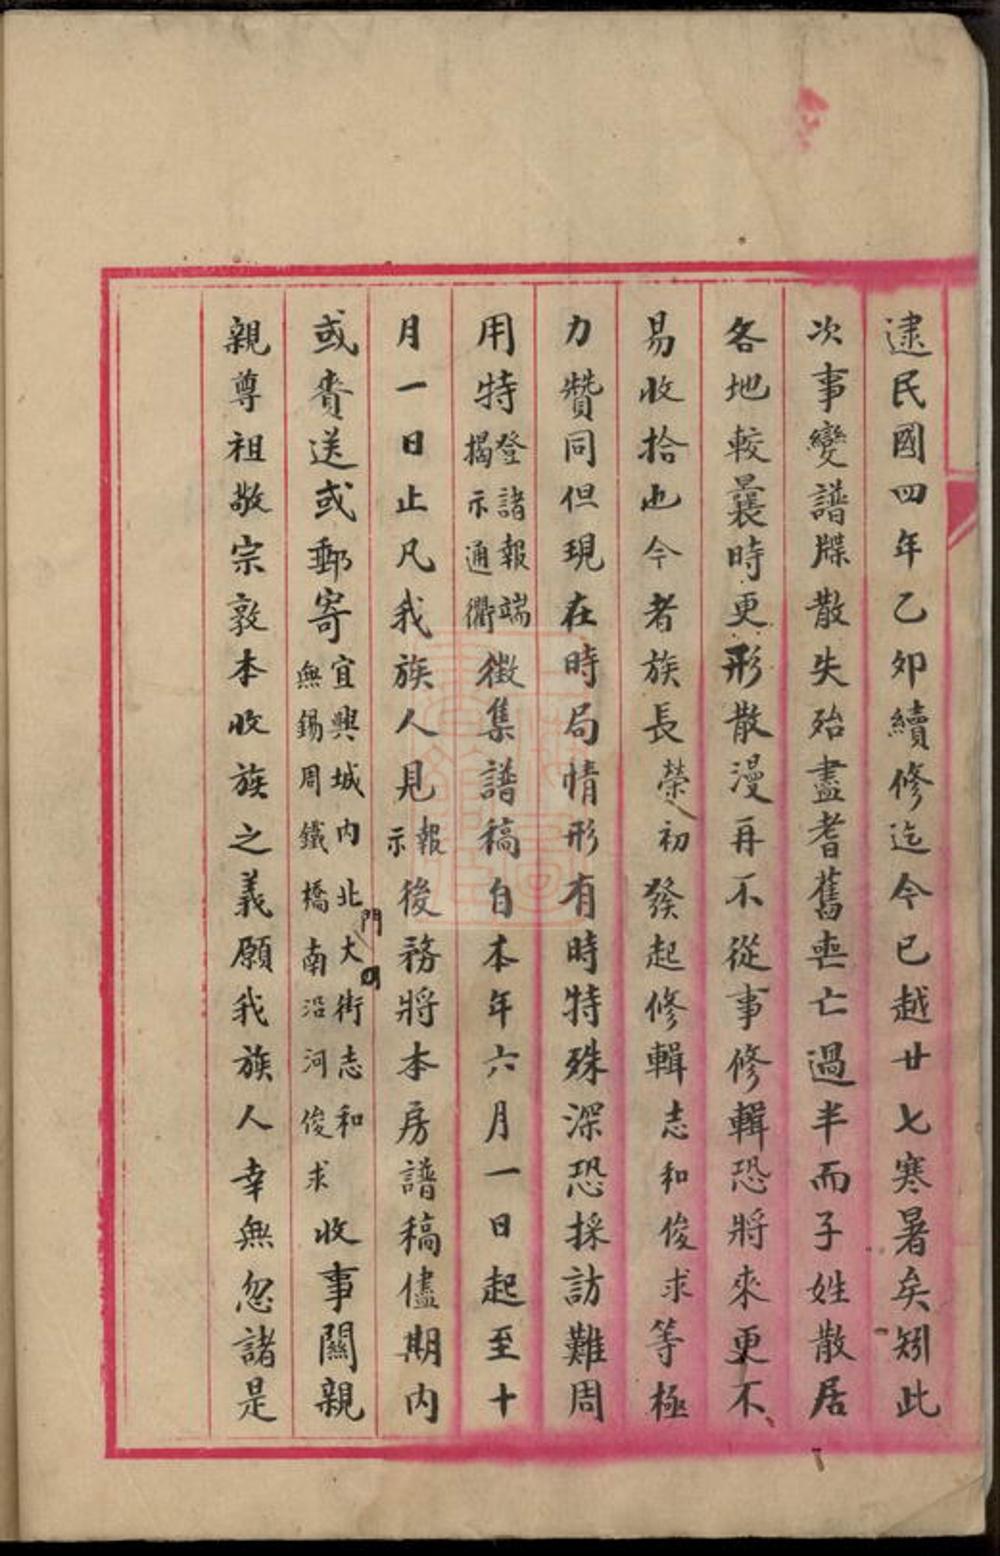 逮民國四年乙卯續修迄今已越廿七寒暑矣矧此
次事變譜牒散失殆盡耆舊喪亡過半而子姓散居
各地較曩時更形散漫再不從事修輯恐將來更不
易收拾也今者族長榮初發起修輯志和俊求等極
力贊同但現在時局情形有時特殊深恐採訪難周
用特登諸報端揭示通衢徵集譜稿自本年六月一日起至十
月一日止凡我族人見報示後務將本房譜稿儘期內
或賫送或郵寄宜興城內北門大街志和無錫周鐵橋南沿河俊求收事關親
親尊祖敬宗敦本收族之義願我族人幸無忽諸是